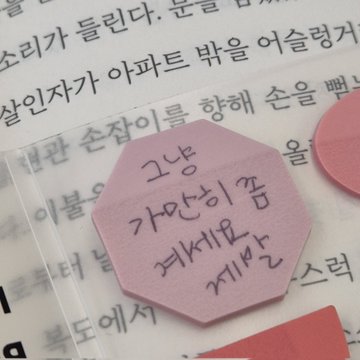 소리가 들린다. 문을
살인자가 아파트 밖을 어슬렁거
현관 손잡이를 향해 손을 뻗
그냥
가만히 좀
계세요
제발
이불
로부터
스럭
복도에서